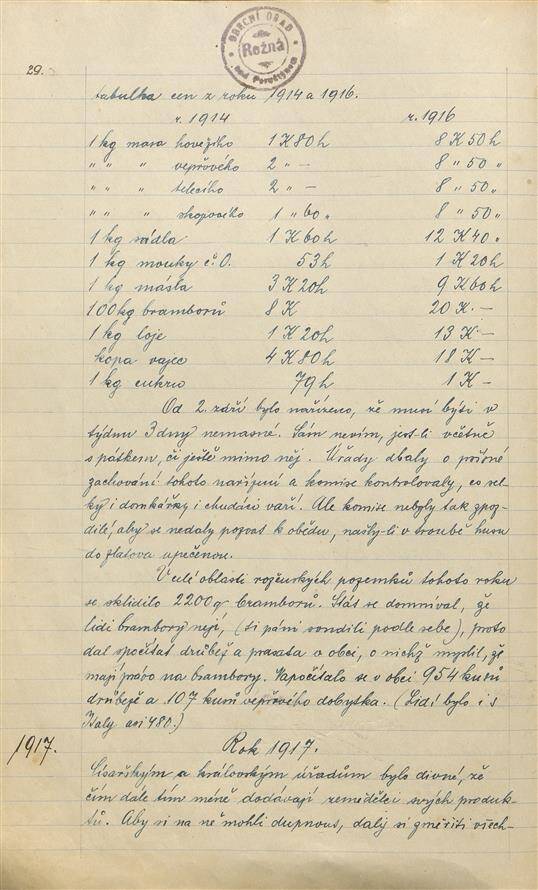 OBECNÍ ÚŘAD
Rožná
nad Pernštýnem
29.
tabulka cen z roku 1914 a 1916.
r. 1914 r. 1916
1 kg masa hovězího 1 K 80 h 8 K 50 h
" " " vepřového 2 " — 8 " 50 "
" " " telecího 2 " — 8 " 50 "
" " " skopového 1 " 60 " 8 " 50 "
1 kg sádla 1 K 60 h 12 K 40 "
1 kg mouky č. 0. 53 h 1 K 20 h
1 kg másla 3 K 20 h 9 K 60 h
100 kg bramborů 8 K 20 K. —
1 kg loje 1 K 20 h 13 K —
kopa vajec 4 K 80 h 18 K —
1 kg cukru 79 h 1 K —
Od 2. září bylo nařízeno, že musí býti v
týdnu 3 dny nemasné. Sám nevím, jest-li včetně
s pátkem, či ještě mimo něj. Úřady dbaly o přísné
zachování tohoto nařízení a komise kontrolovaly, co sel-
ky i domkářky i chudáci vaří. Ale komise nebyly tak zpoz-
dilé, aby se nedaly pozvat k obědu, našly-li v troubě husu
do zlatova upečenou.
V celé oblasti roženských pozemků tohoto roku
se sklidilo 2200 q bramborů. Stát se domníval, že
lidi brambory nejí, (ti páni soudili podle sebe), proto
dal spočítat drůbež a prasata v obci, o nichž myslil, že
mají právo na brambory. Napočítalo se v obci 954 kusů
drůbeže a 107 kusů vepřového dobytka. (Lidí bylo i s
Italy asi 480.)
1917. Rok 1917.
Císařským a královským úřadům bylo divné, že
čím dále tím méně dodávají zemědělci svých produk-
tů. Aby si na ně mohli dupnout, daly si změřiti všech-